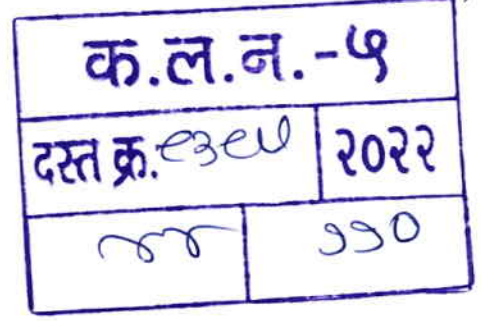 क.ल.न.-५
दस्त क्र. ९३९५ २०२२
४४ ११०